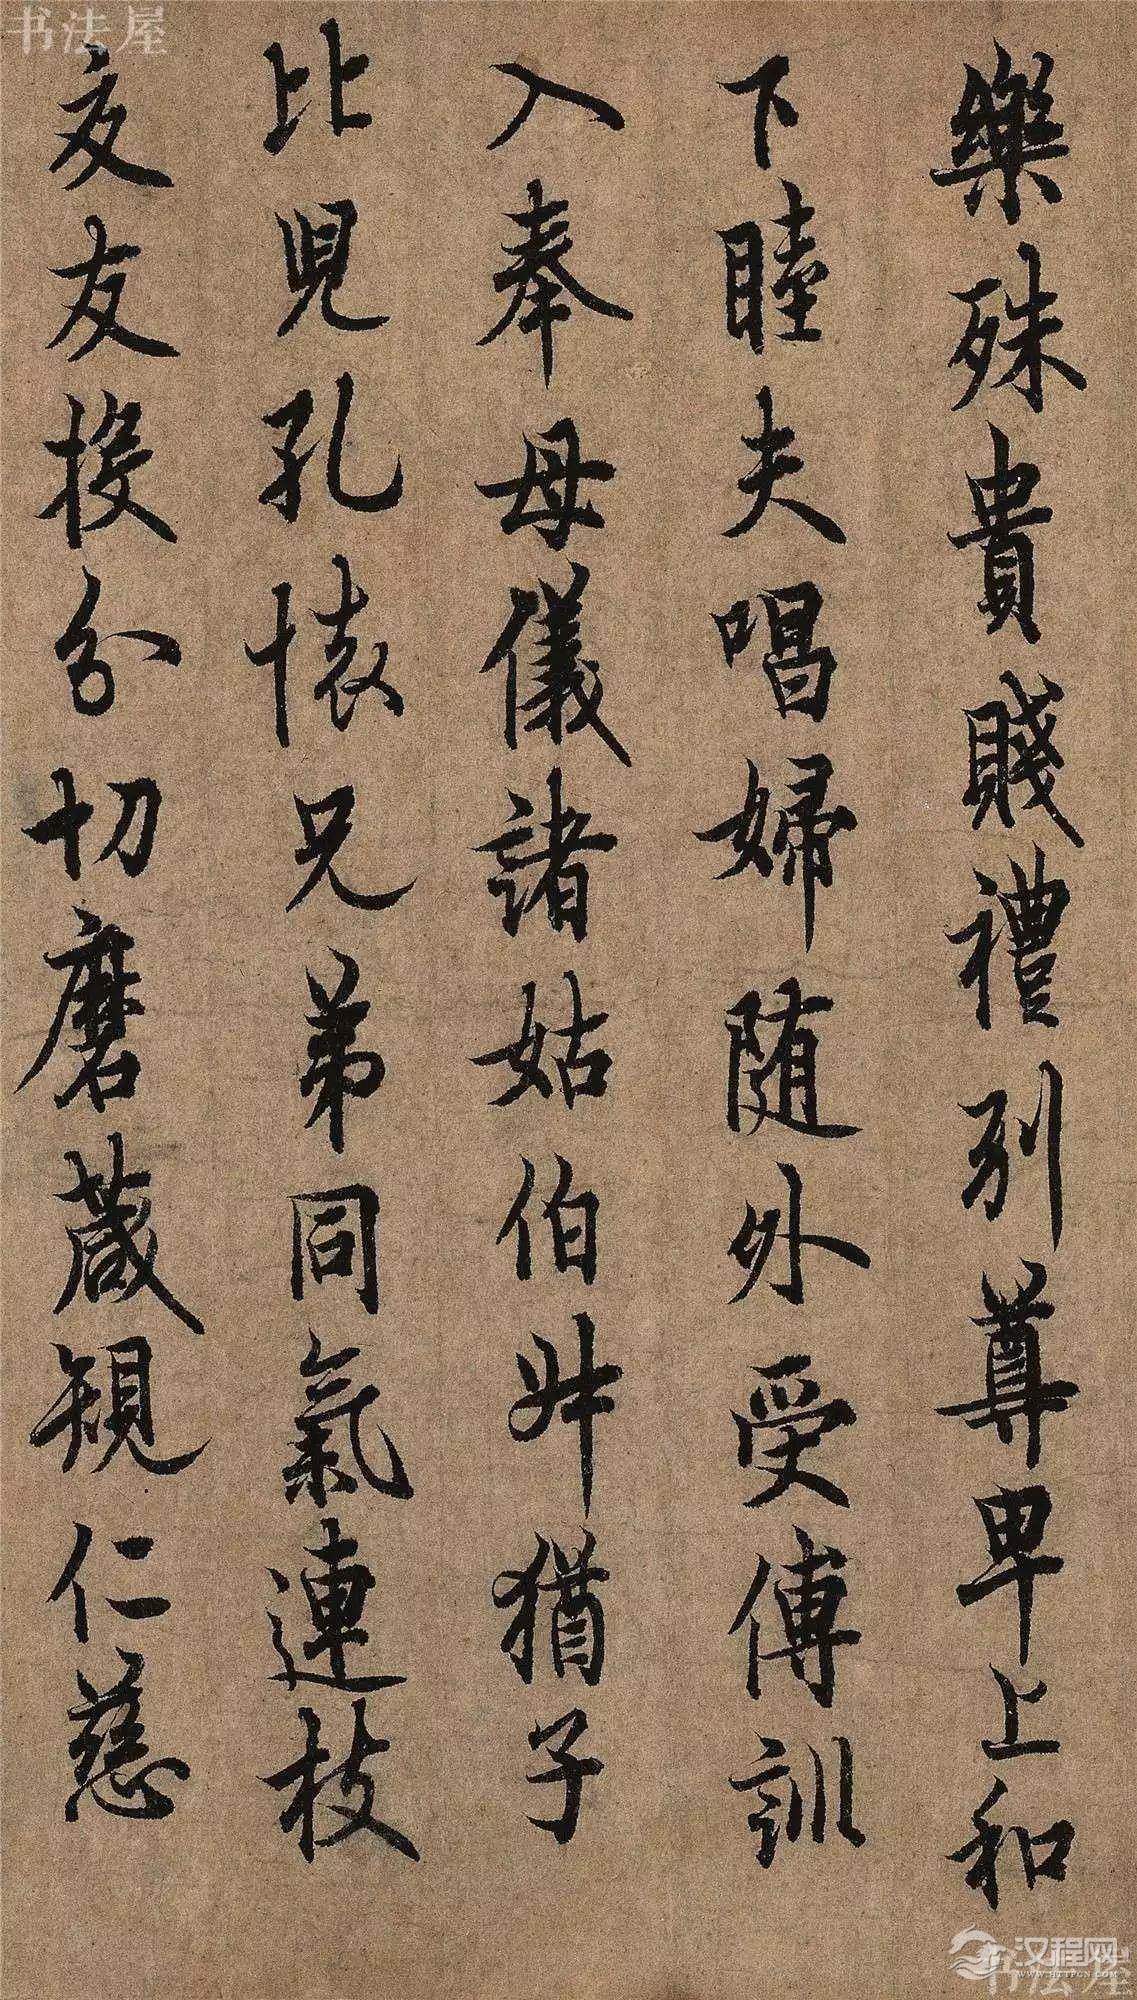 樂殊貴賤禮別尊卑上和
下睦夫唱婦随外受傅訓
入奉母儀諸姑伯叔猶子
比兒孔懐兄弟同氣連枝
交友投分切磨葴規仁慈
书法屋
汉程网
WWW.HTTPCN.COM
书法屋